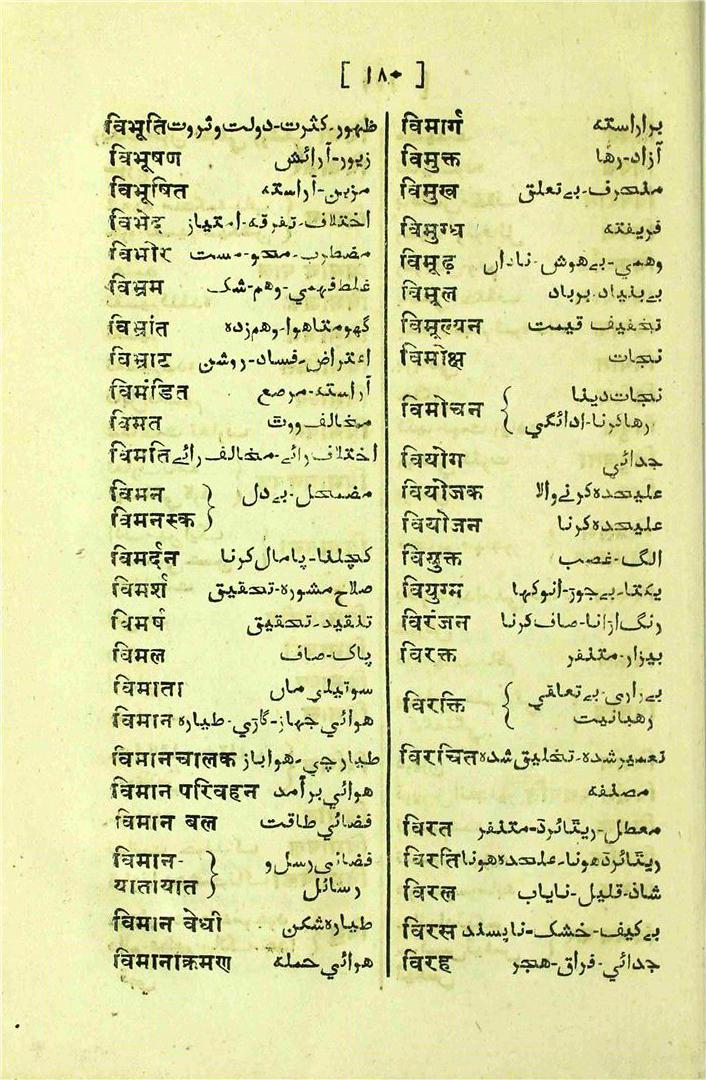 [ ۱۸۰ ]
विभूति ظہور-کثرت-دولت وثروت
विभूषण زیور-آرائش
विभूषित مزین-آراستہ
विभेद اختلاف-تفرقہ-امتیاز
विभोर مضطرب-محو-مست
विभ्रम غلط فہمی-وھم-شک
विभ्रांत گھومتاھوا-وھم زدہ
विभ्राट اعتراض-فساد-روشن
विमंडित آراستہ-مرصع
विमत مخالف ووٹ
विमति اختلاف رائے-مخالف رائے
विमन } مضمحل-بے دل
विमनस्क }
विमर्दन کچلنا-پامال کرنا
विमर्श صلاح مشورہ-تحقیق
विमर्ष تنقید-تحقیق
विमल پاک-صاف
विमाता سوتیلی ماں
विमान ھوائی جہاز-گاڑی-طیارہ
विमानचालक طیارچی-ھواباز
विमान परिवहन ھوائی برآمد
विमान बल فضائی طاقت
विमान- } فضائی رسل و
यातायात } رسائل
विमान वेधी طیارہ شکن
विमानाक्रमण ھوائی حملہ
विमार्ग براراستہ
विमुक्त آزاد-رھا
विमुख منحرف-بے تعلق
विमुग्ध فریفتہ
विमूढ़ وھمی-بے ھوش-ناداں
विमूल بے بنیاد-برباد
विमूल्यन تخفیف قیمت
विमोक्ष نجات
विमोचन { نجات دینا
رھاکرنا-ادائگی
वियोग جدائی
वियोजक علیحدہ کرنے والا
वियोजन علیحدہ کرنا
वियुक्त الگ-غصب
वियुग्म یکتا-بے جوڑ-انوکھا
विरंजन رنگ اڑانا-صاف کرنا
विरक्त بیزار-متنفر
विरक्ति { بے زاری-بے تعلقی
رھبانیت
विरचित تعمیر شدہ-تخلیق شدہ
مصنفہ
विरत معطل-ریٹائرڈ-متنفر
विरति ریٹائرڈ ھونا-علحدہ ھونا
विरल شاذ-قلیل-نایاب
विरस بے کیف-خشک-ناپسند
विरह جدائی-فراق-ھجر